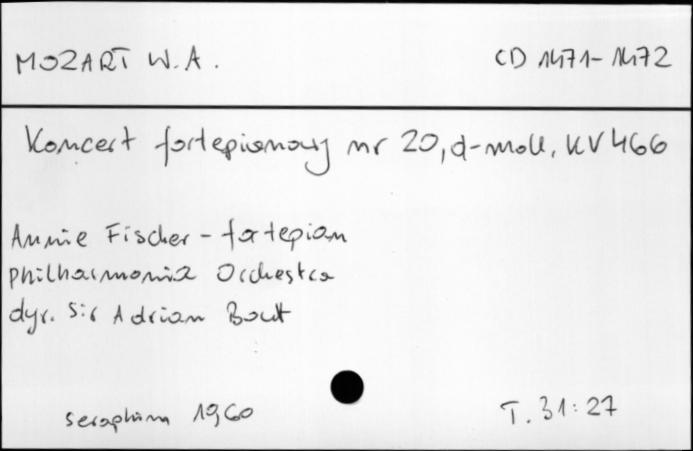 MOZART W.A.
CD 1471-1472
Koncert fortepianowy nr 20, d-moll, KV 466
Annie Fischer - fortepian
Philharmonia Orchestra
dyr. Sir Adrian Boult
seraphim 1960
T. 31:27